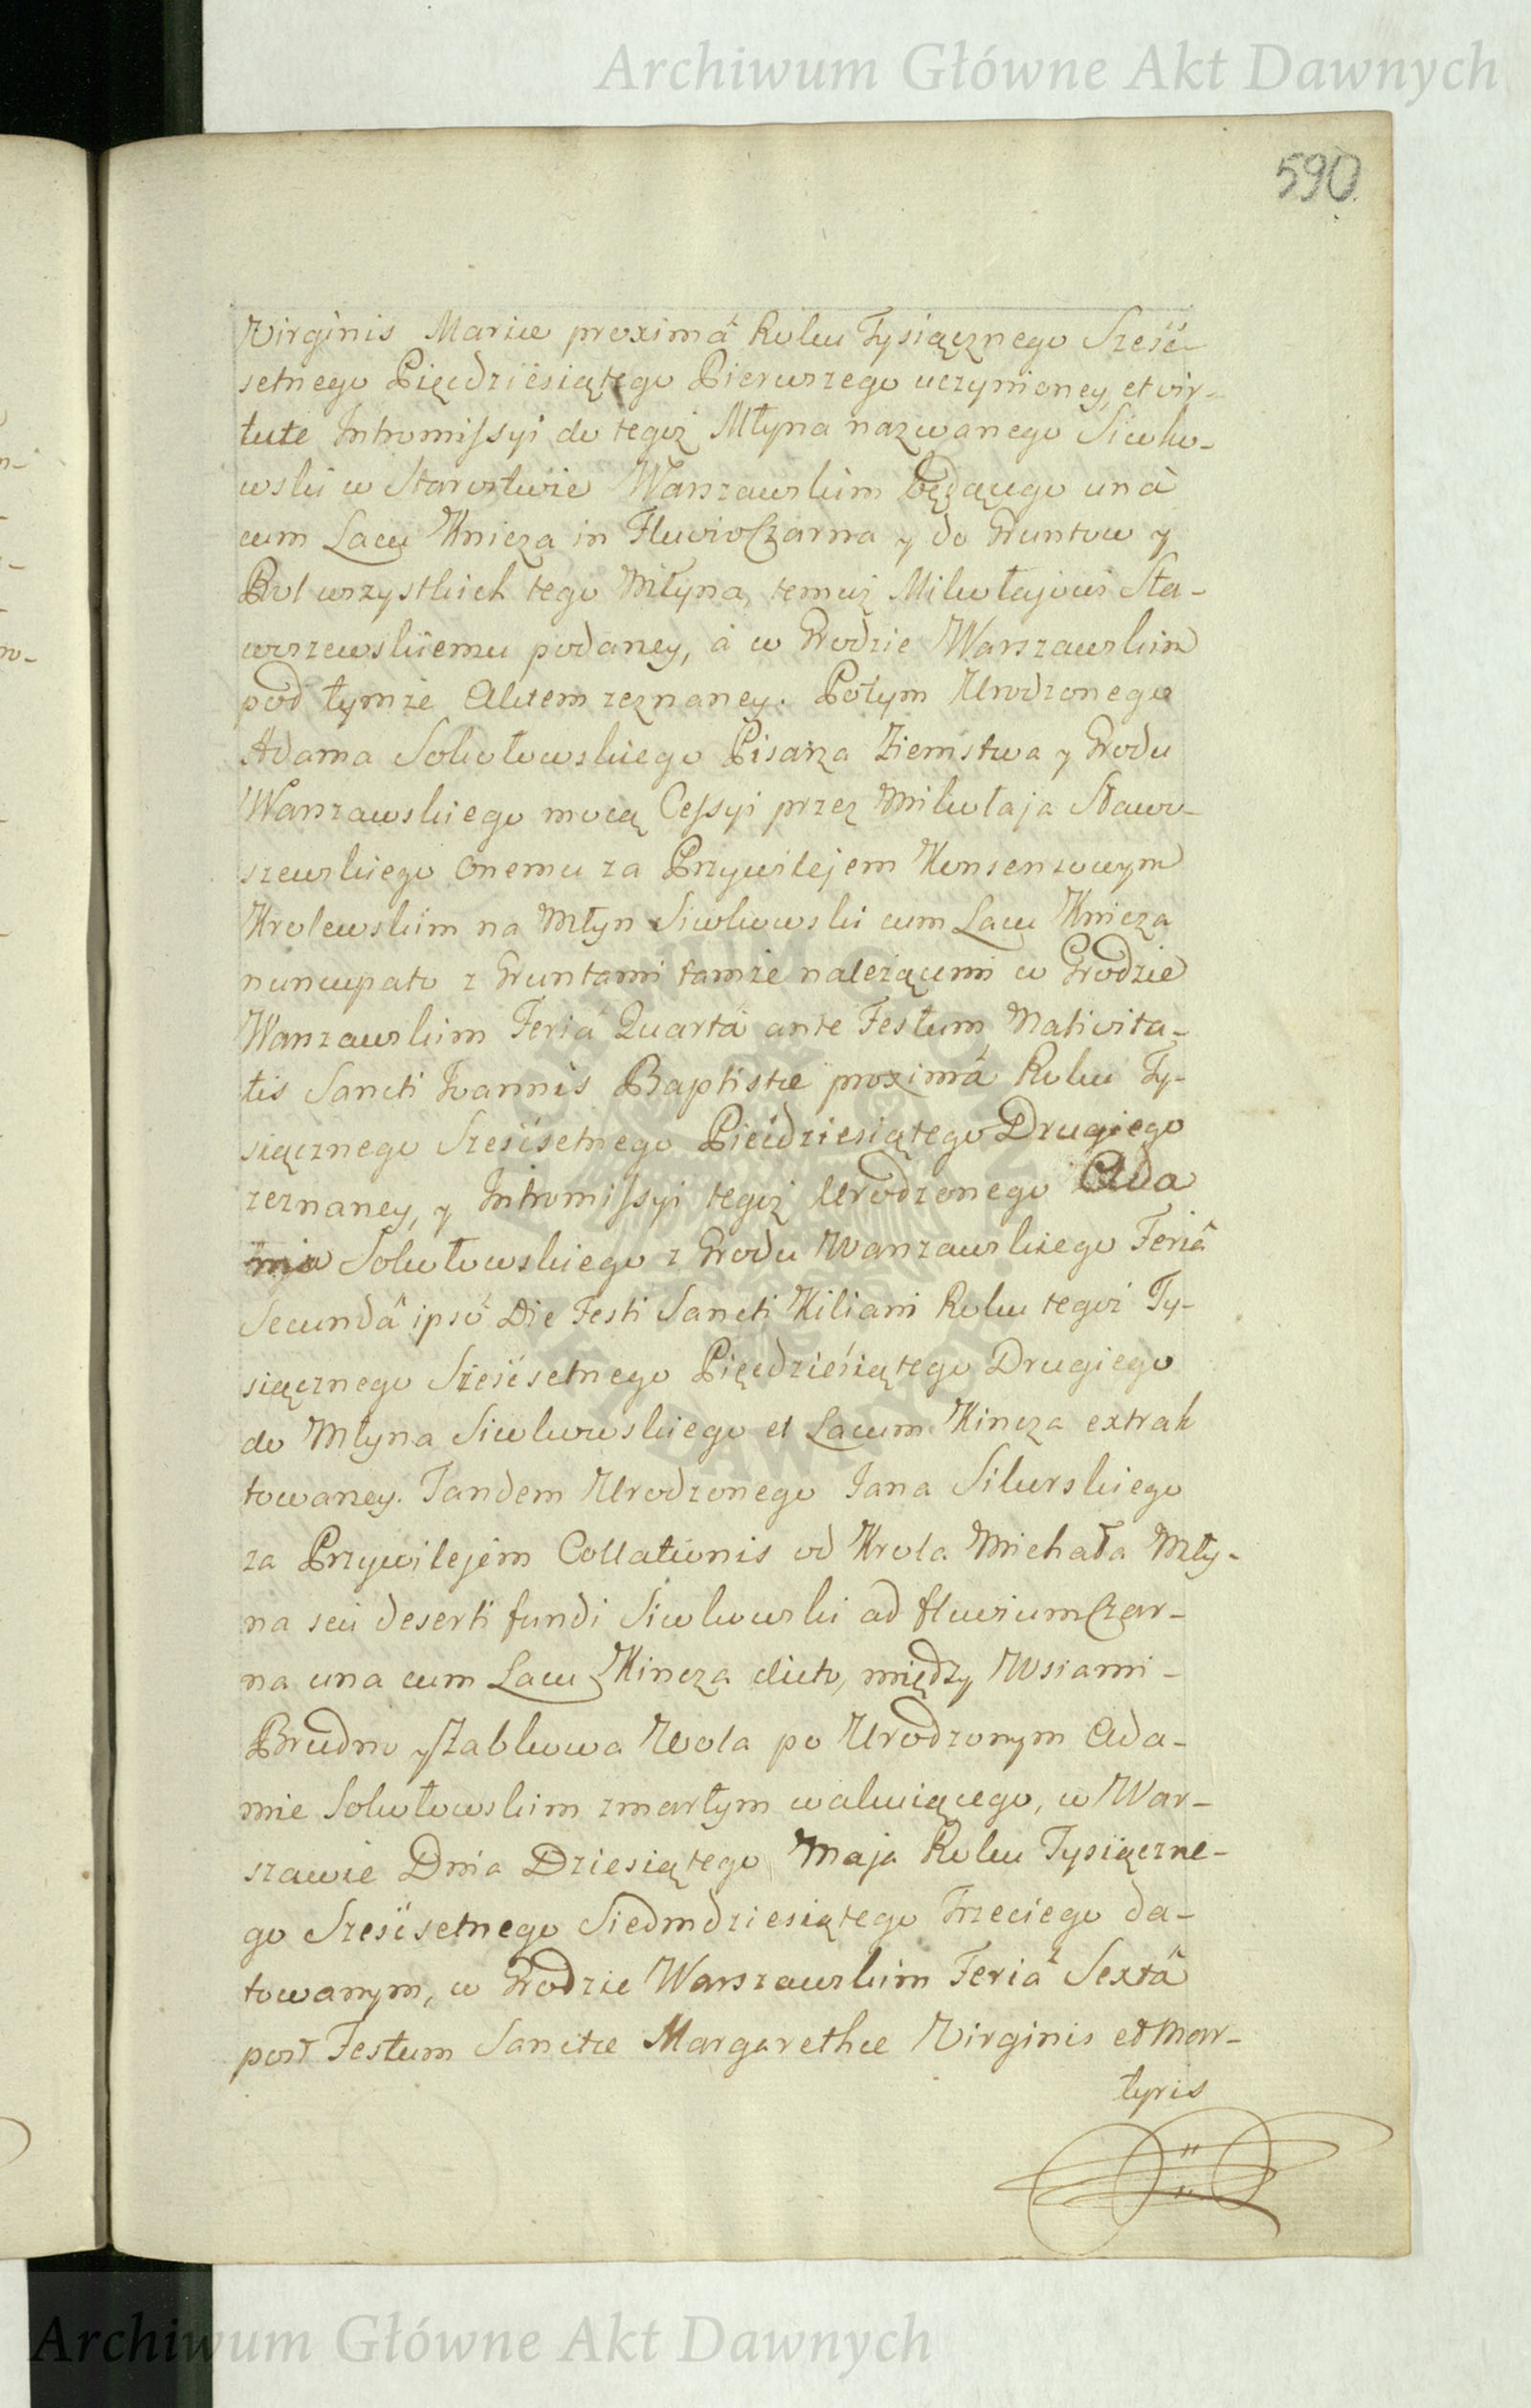 Archiwum Główne Akt Dawnych
590.
Virginis Mariæ proximâ Roku Tysiącznego Sześć
setnego Pięcdziesiątego Pierwszego uczynioney, et vir-
tute Intromissyi do tegoż Młyna nazwanego Siwko-
wski w Starostwie Warszawskim będącego unà
cum Lacu Knieza in Fluvio Czarna y do Gruntow y
Rol wszystkich tego Młyna, temuż Mikołajowi Sta-
worzewskiemu podaney, à w Grodzie Warszawskim
pod tymże Aktem zeznaney. Potym Urodzonego
Adama Sokołowskiego Pisarza Ziemstwa y Grodu
Warszawskiego mocą Cessyi przez Mikołaja Stawo-
szewskiego onemu za Przywilejem Konsensowym
Krolewskim na Młyn Siwkowski cum Lacu Knieza
nuncupato z Gruntami tamże należącemi w Grodzie
Warszawskim Feriâ Quartâ ante Festum Nativita-
tis Sancti Joannis Baptistæ proximâ Roku Ty-
siącznego Sześćsetnego Piećdziesiątego Drugiego
zeznaney, y Intromissyi tegoż Urodzonego Ada
ma Sokołowskiego z Grodu Warszawskiego Feriâ
Secundâ ipsô Die Festi Sancti Kiliani Roku tegoż Ty-
siącznego Sześćsetnego Pięcdzieśiątego Drugiego
do Młyna Siwkowskiego et Lacum Kincza extrak
towaney. Tandem Urodzonego Jana Sikorskiego
za Przywilejem Collationis od Krola Michała Mły-
na seu deserti fundi Siwkowski ad fluvium Czar-
na una cum Lacu Kincza dicto, między Wsiami -
Brudno y Ząbkowa Wola po Urodzonym Ada-
mie Sokołowskim zmarłym wakuiącego, w War-
szawie Dnia Dziesiątego Maja Roku Tysiączne-
go Sześćsetnego Siedmdziesiątego Trzeciego da-
towanym, w Grodzie Warszawskim Feriâ Sextâ
post Festum Sanctæ Margarethæ Virginis et Mar-
tyris
Archiwum Główne Akt Dawnych